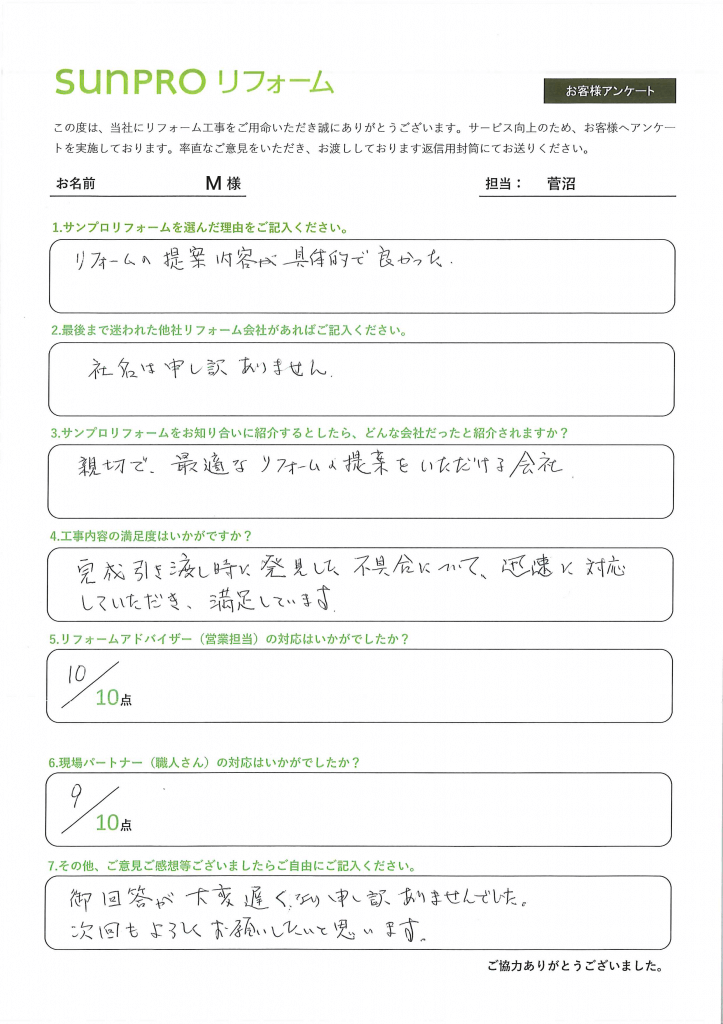 SUNPRO リフォーム
お客様アンケート
この度は、当社にリフォーム工事をご用命いただき誠にありがとうございます。サービス向上のため、お客様へアンケー
トを実施しております。率直なご意見をいただき、お渡ししております返信用封筒にてお送りください。
お名前 M 様 担当： 菅沼
1.サンプロリフォームを選んだ理由をご記入ください。
リフォームの提案内容が具体的で良かった.
2.最後まで迷われた他社リフォーム会社があればご記入ください。
社名は申し訳ありません.
3.サンプロリフォームをお知り合いに紹介するとしたら、どんな会社だったと紹介されますか？
親切で、最適なリフォームの提案をいただける会社.
4.工事内容の満足度はいかがですか？
完成引き渡し時に発見した不具合について、迅速に対応
していただき、満足しています.
5.リフォームアドバイザー（営業担当）の対応はいかがでしたか？
10/10点
6.現場パートナー（職人さん）の対応はいかがでしたか？
9/10点
7.その他、ご意見ご感想等ございましたらご自由にご記入ください。
御回答が大変遅くなり申し訳ありませんでした。
次回もよろしくお願いしたいと思います。
ご協力ありがとうございました。